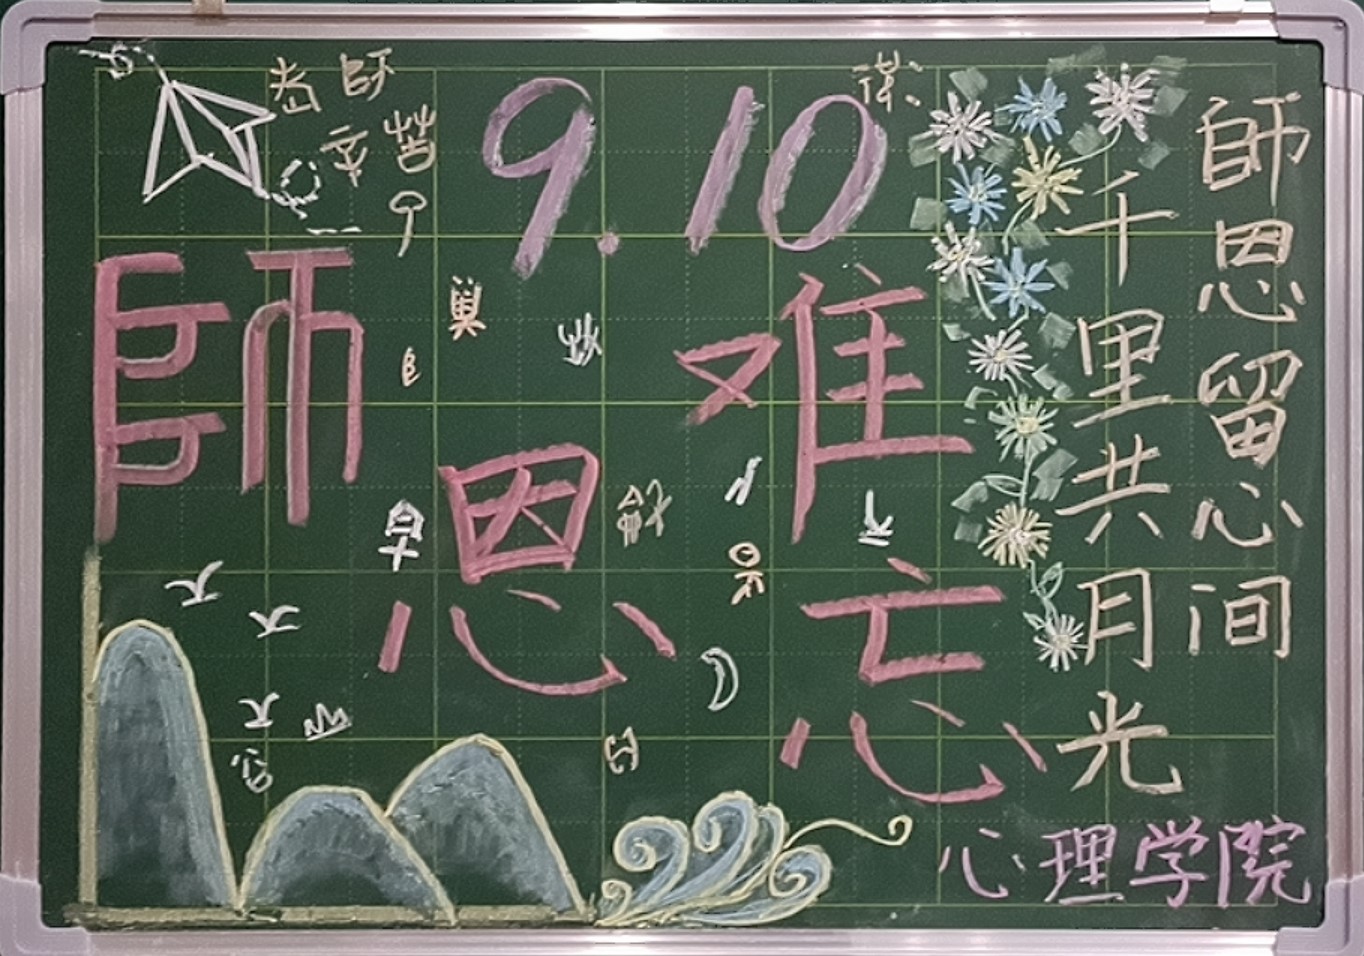 老師
辛苦了
9.10
師恩难忘
師恩留心间
千里共月光
心理学院